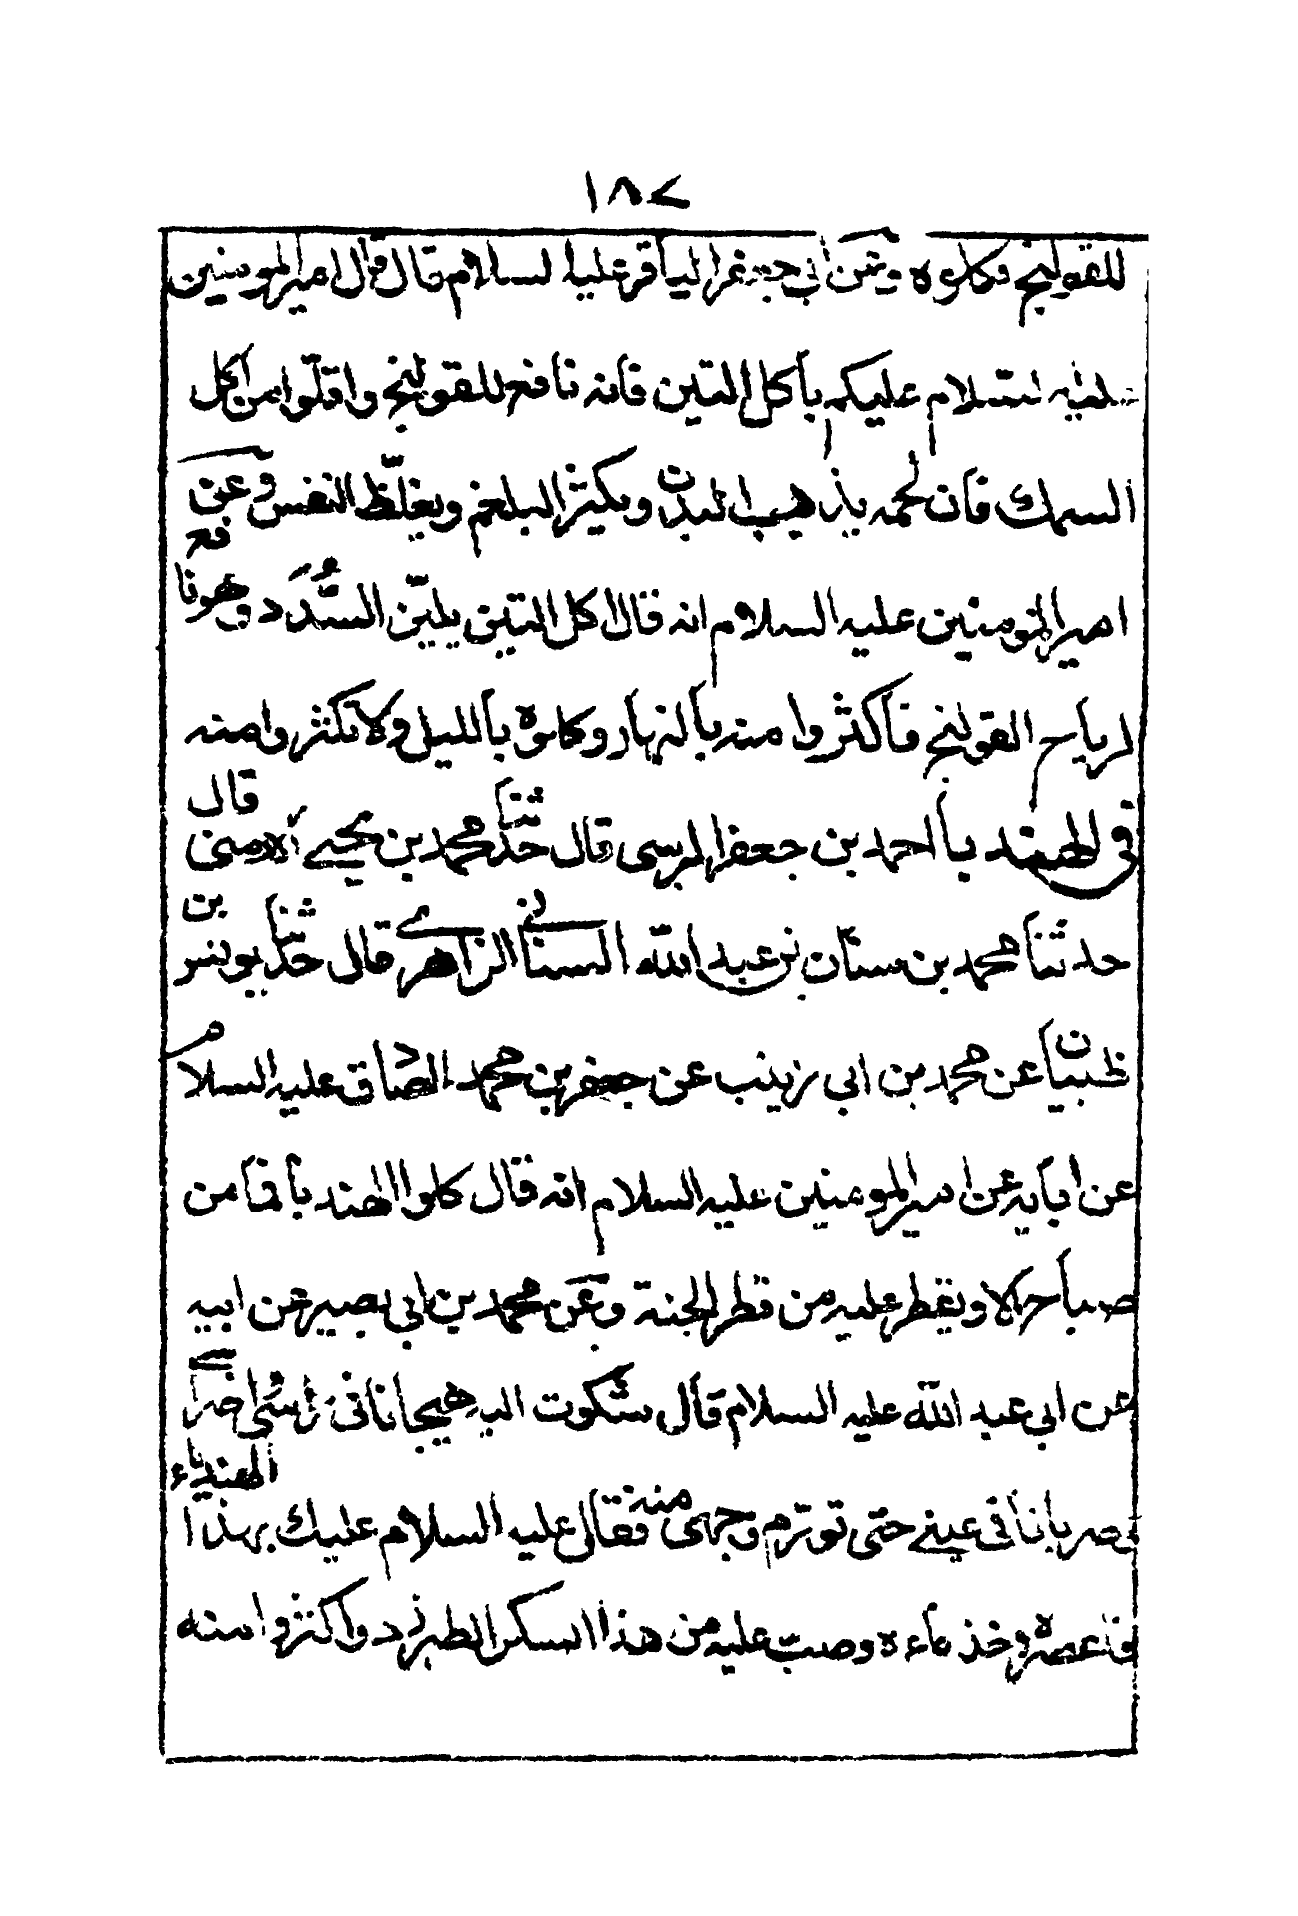 ١٨٧
للقولنج فكلوه وعن ابي جعفر الباقر عليه السلام قال قال امير المومنين
عليه السلام عليكم بأكل التين فانه نافع للقولنج واقلّوا من اكل
السمك فان لحمه يذهب البدن ويكثر البلغم ويغلّظ النفس وعن
امير المومنين عليه السلام انه قال اكل التين يليّن السُّدَد وهو نافع
لرياح القولنج فأكثروا منه بألنهار وكلوه بألليل ولا تكثروا منه
في الهند با احمد بن جعفر المرسى قال حدّثنا محمد بن يحيى الارمنى قال
حدثنا محمد بن سنان بن عبد اللّه السنانى الزاهرى قال حدّثنا يونس بن
ظبيان عن محمد بن ابي زينب عن جعفر بن محمد الصادق عليه السلام
عن ابآيه عن امير المومنين عليه السلام انه قال كلوا الهند بآ فما من
صباح الا ويقطر عليه من قطر الجنة وعن محمد بن ابي بصير عن ابيه
عن ابي عبد اللّه عليه السلام قال شكوت اليه هيجانا فى رأسى واضراسى
وضربانا في عينى حتى تورّم وجهى منه فقال عليه السلام عليك بهذا الهندباء
فاعصره وخذ ماءه وصبّ عليه من هذا السكر الطبرزد واكثر امنه